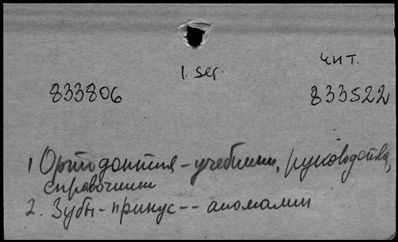 1. ser.
чит.
833806
833522
1 Ортодонтия - учебники, руководства,
справочники
2. Зубы - прикус -- аномалии